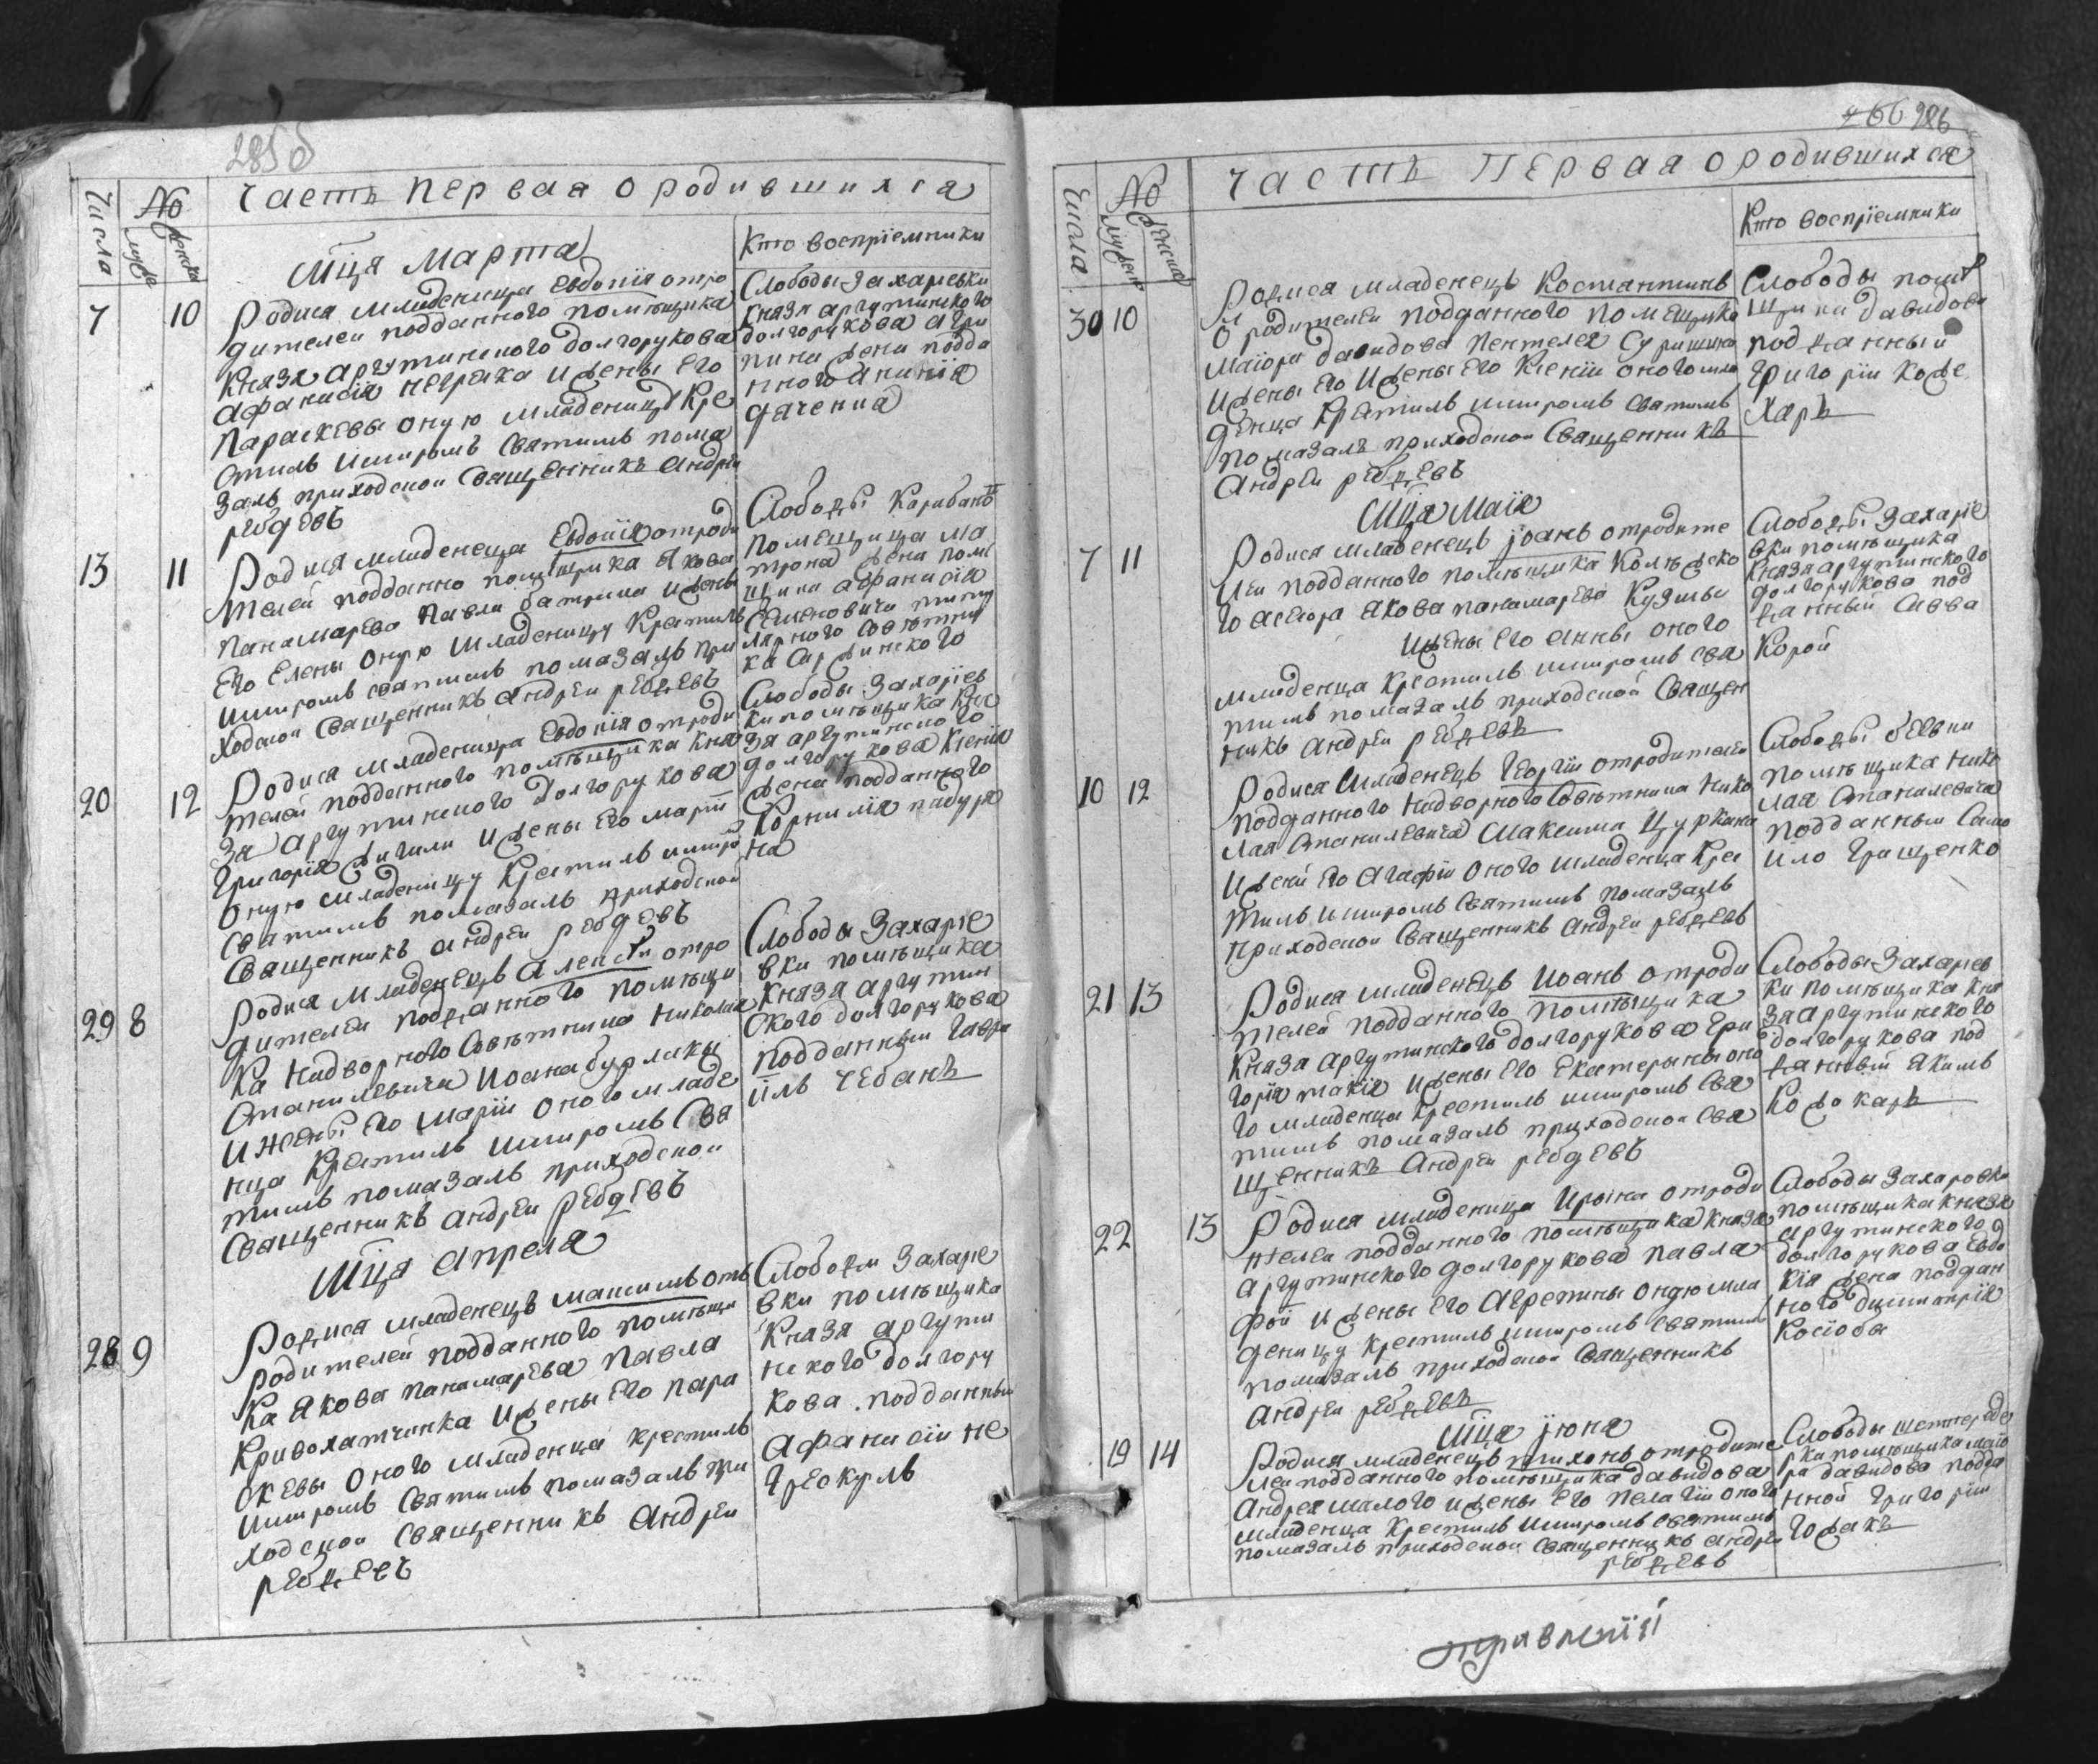 285 б
Часть первая о родившихся
Числа
№
муже
женска
Мца Марта
Кто восприемники
7
10
Родися младеница Евдокия отро
дителей подданного помещика
Князя аргутинского долгорукова
афанасия негрека и жены его
Параскевы оную младеницу кре
стилъ имиромъ святымъ пома
залъ приходской священникъ андрей
ребдевъ
Слободы захаревки
князя аргутинского
долгорукова агри
пина жена подда
нного анания
дяченка
13
11
Родися младенеца Евдокия отроди
телей подданно помещика Якова
панамарева павла батрина и жены
Его Елены оную младеницу крестилъ
имиромъ святымъ помазалъ при
ходской священникъ андрей ребдевъ
Слободы Карабано
помещица ма
трона жена поме
щика афанасия
Семеновича титу
лярного советни
ка
20
12
Родися младеница Евдокия отроди
телей подданного помещика кня
зя аргутинского долгорукова
григория жигили и жены его марии
оную младеницу крестилъ имиро
святымъ помазалъ приходской
священникъ андрей ребдевъ
Слободы захарiев
ки помещика кня
зя аргутинского
долгорукова ксения
жена подданного
корнилия падуря
на
29
8
Родися младенецъ алексей отро
дителей подданного помещи
ка надворного советника николая
станилевича иоана бурлаки
и жены его марии оного младе
нца крестилъ имиромъ свя
тымъ помазалъ приходской
священникъ андрей ребдевъ
Слободы захарiе
вки помещика
князя аргутин
ского долгорукова
подданный гаври
илъ чебанъ
Мца апреля
28
9
Родися младенецъ максимъ отъ
родителей подданного помещи
ка якова панамарева павла
кривохатченка и жены его пара
скевы оного младенца крестилъ
имиромъ святымъ помазалъ при
ходской священникъ андрей
ребдевъ
Слободы захарiе
вки помещика
князя аргути
нского долгору
кова подданный
афанасiй не
грескулъ
266 286
Часть первая о родившихся
Числа
№
мужеск
женска
Кто восприемники
30
10
Родися младенецъ Костантинъ
о родителей подданного помещика
маiора давидова пентелея
и жены его и жены его ксенiи оного мла
денца крестилъ имиромъ святымъ
помазалъ приходской священникъ
андрей ребдевъ
Слободы поме
щика давидова
подданный
григорiй коже
харь
Мца маiя
7
11
Родися младенецъ iоанъ отродите
лей подданного помещика колежско
го асесора якова панамарева кузьмы
и жены его анны оного
младенца крестилъ имиромъ свя
тымъ помазалъ приходской священ
никъ андрей ребдевъ
Слободы захарiе
вки помещика
князя аргутинского
долгорукова под
данный савва
корой
10
12
Родися младенецъ георгiй отродителей
подданного надворного советника нико
лая станилевича максима цуркана
и жены его агафiи оного младенца кре
стилъ имиромъ святымъ помазалъ
приходской священникъ андрей ребдевъ
Слободы
помещика нико
лая станилевича
подданный само
ило грищенко
21
13
Родися младенецъ иоанъ отроди
телей подданного помещика
князя аргутинского долгорукова гри
горiя такiя и жены его екатерины оно
го младенца крестилъ имиромъ свя
тымъ помазалъ приходской свя
щенникъ андрей ребдевъ
Слободы захарев
ки помещика кня
зя аргутинского
долгорукова под
данный якимъ
кожокарь
22
13
Родися младеница ирына отроди
телей подданного помещика князя
аргутинского долгорукова павла
фой и жены его агрепины оную мла
деницу крестилъ имиромъ святымъ
помазалъ приходской священникъ
андрей ребдевъ
Слободы захаровки
помещика князя
аргутинского
долгорукова евдо
кiя жена поддан
ного димитрiя
косiоба
Мца iюня
19
14
Родися младенецъ тихонъ отродите
лей подданного помещика давидова
андрея малого и жены его пелагiи оного
младенца крестилъ имиромъ святымъ
помазалъ приходской священникъ андрей
ребдевъ
Слободы
рки помещика маiо
ра давидова подда
нной григорiй
гожакъ